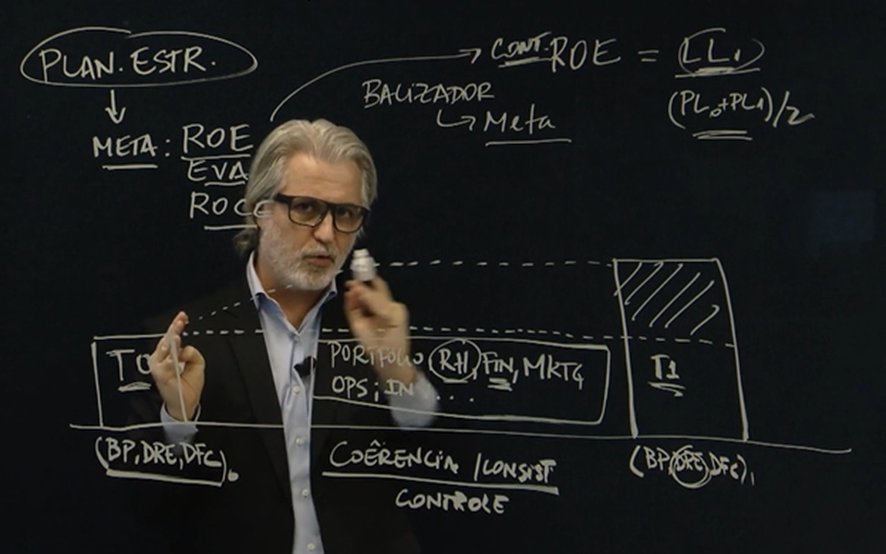 PLAN. ESTR.
META: ROE
EVA
ROCE
CONT. ROE = LL1
(PL0+PL1)/2
BALIZADOR
Meta
T0
PORTFOLIO, RH, FIN, MKTG
OPS; IN ...
T1
(BP, DRE, DFC)0
COÊRENCIA / CONSIST
CONTROLE
(BP, DRE, DFC)1